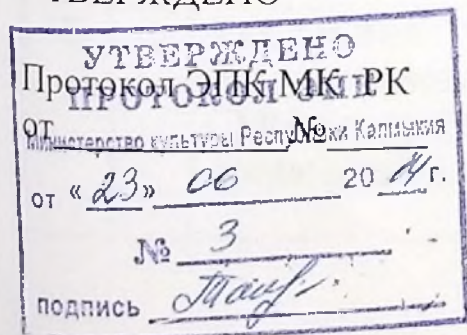 УТВЕРЖДЕНО
УТВЕРЖДЕНО
Протокол ЭПК МК РК
ПРОТОКОЛ ЭПК
от №
Министерство культуры Республики Калмыкия
от «23» 06 2014 г.
№ 3
подпись